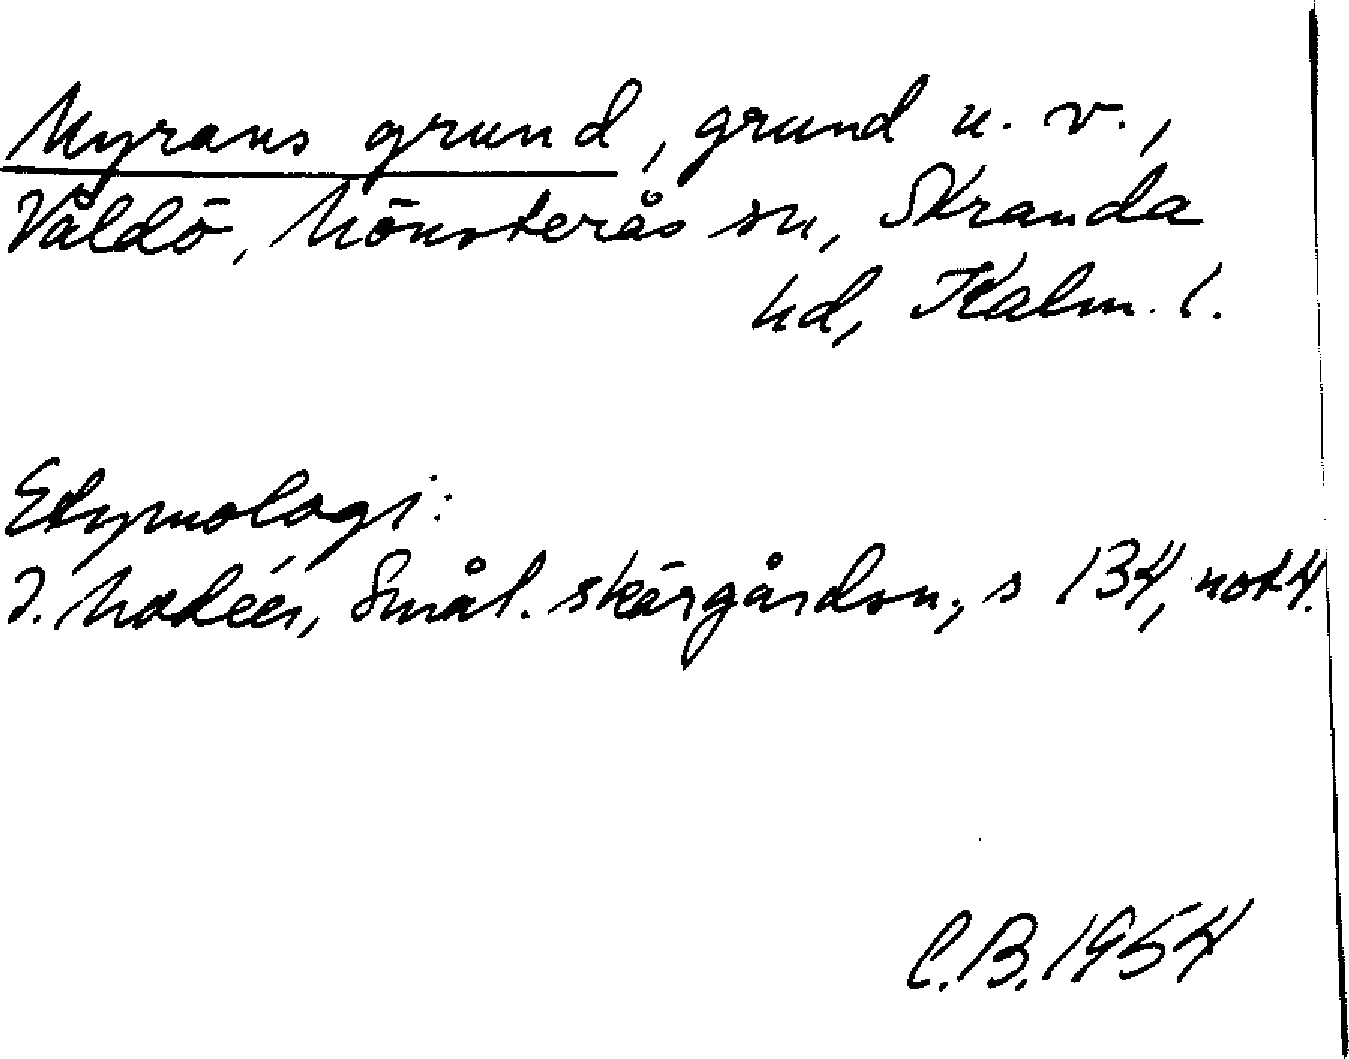 Myrans grund, grund n. v.,
Våldö, Mönsterås sn, Stranda
hd, Kalm. l.
Etymologi:
I. Modéer, Smål. skärgårdsn., s 134, not 4.
C.B. 1954